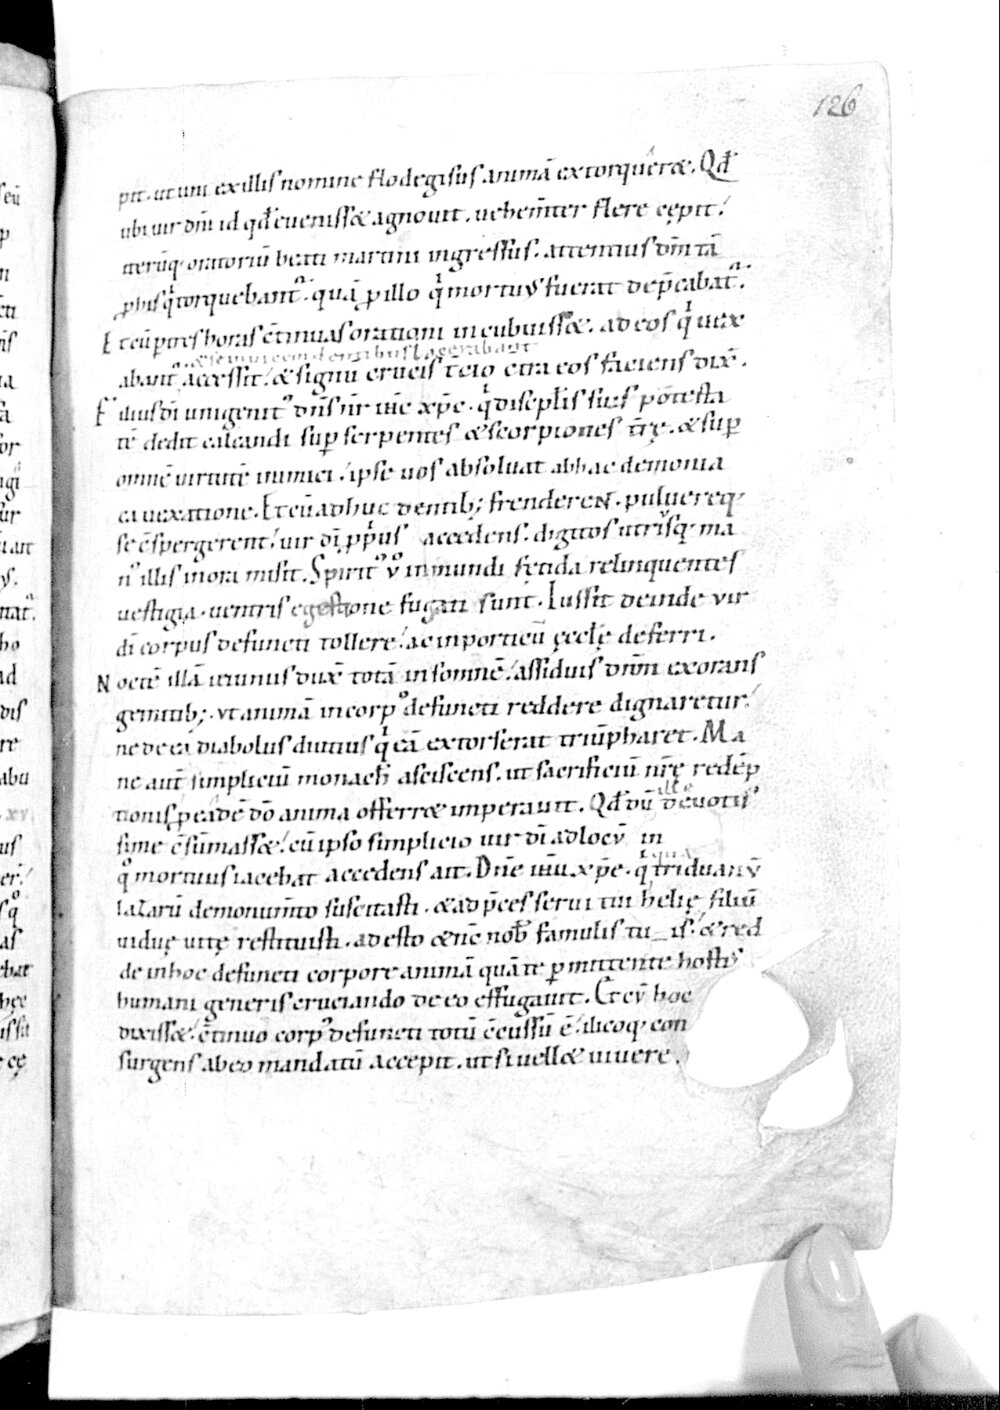 126
pit. ut uni ex illis nomine flodegisus animā extorqueret. Qđ
ubi uir dn̄i id qđ euenisset agnouit. uehem̄ter flere cępit.
iterūq; oratoriū beati martini ingressus. attentius dn̄m tā
ꝓ his qͥ torquebantᷣ. quā ꝓ illo qͥ mortuꝰ fuerat dep̄cabatᷣ.
Et cū pͥres horas c̄tinuas orationi incubuisset. ad eos qͥ uex
& se inuicem dentibus lacerabant
abantᷣ accessit. & signū crucis tcio ctra eos faciens dix̄.
Filius dī unigenitꝰ dn̄s n̄r ih̄c xp̄c. qͥ discipl̄is suis potesta
tē dedit calcandi suꝑ serpentes & scorpiones t̄rę. & suꝑ
omnē uirtutē inimici. ipse uos absoluat ab hac demonia
ca uexatione. Et cū adhuc dentib; frenderent. puluereq;
se c̄spergerent. uir dī ppͥus accedens. digitos utrisq; ma
nꝰ illis in ora misit. Spiritꝰ v̊ inmundi fętida relinquentes
uestigia. uentris egestione fugati sunt. Iussit deinde vir
dī corpus defuncti tollere. ac in porticū ęccl̄ę deferri.
Noctē illā ieiunus dux̄ totā insomnē. assiduis dn̄m exorans
gemitib; vt animā in corpꝰ defuncti reddere dignaretur.
ne de ea diabolus diutius qͥ eā extorserat triūpharet. Ma
ne aut̄ simpliciū monach̄ asciscens. ut sacrificiū n̄rę redēp
tionis ꝑ eadē dō anima offerret imperauit. Qđ dū ille deuotis
sime c̄sūmasset. cū ipso simplicio uir dī ad locū in
qͦ mortuus iacebat accedens ait. Dn̄e ih̄u xp̄e. qͥ triduanū
lazarū de monum̄to suscitasti. & ad p̄ces serui tui helię filiū
uiduę uitę restituisti. adesto & nc̄ nob̄ famulis tuis. & red
de in hoc defuncti corpore animā quā te ꝑmittente hostis
humani generis cruciando de eo effugauit. Et cū hoc
dixisset. c̄tinuo corpꝰ defuncti totū c̄cussū ē. ilicoq; con
surgens ab eo mandatū accepit. ut si uellet uiuere.